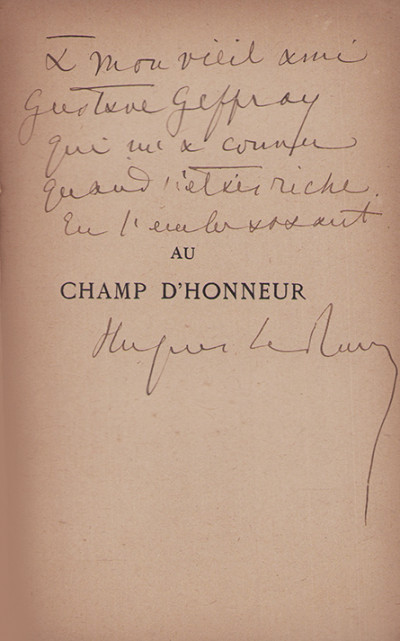 À mon vieil ami
Gustave Geffroy
qui m'a connu
quand j'étais riche.
En l'embrassant
AU
CHAMP D'HONNEUR
Hugues Le Roux